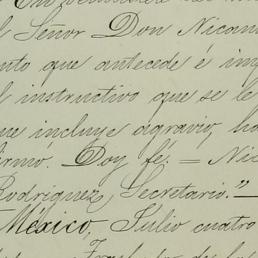 l Señor Don Nican
nto que antecede é im
l instructivo que se le
ue incluye agravio, ho
firmó. Doy fé. = Nic
Rodriguez, Secretario."
México, Julio cuatro